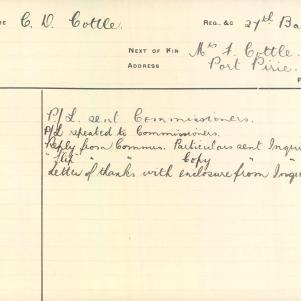 C. D. Cottle. REG. &C 27th Ba
NEXT OF KIN Mrs F. Cottle.
ADDRESS Port Pirie.
P/L. sent Commissioners.
P/L repeated to Commissioners.
Reply from Commrs. Particulars sent Inquir
"Slip" " " Copy " "
Letter of thanks with enclosure from Inqui